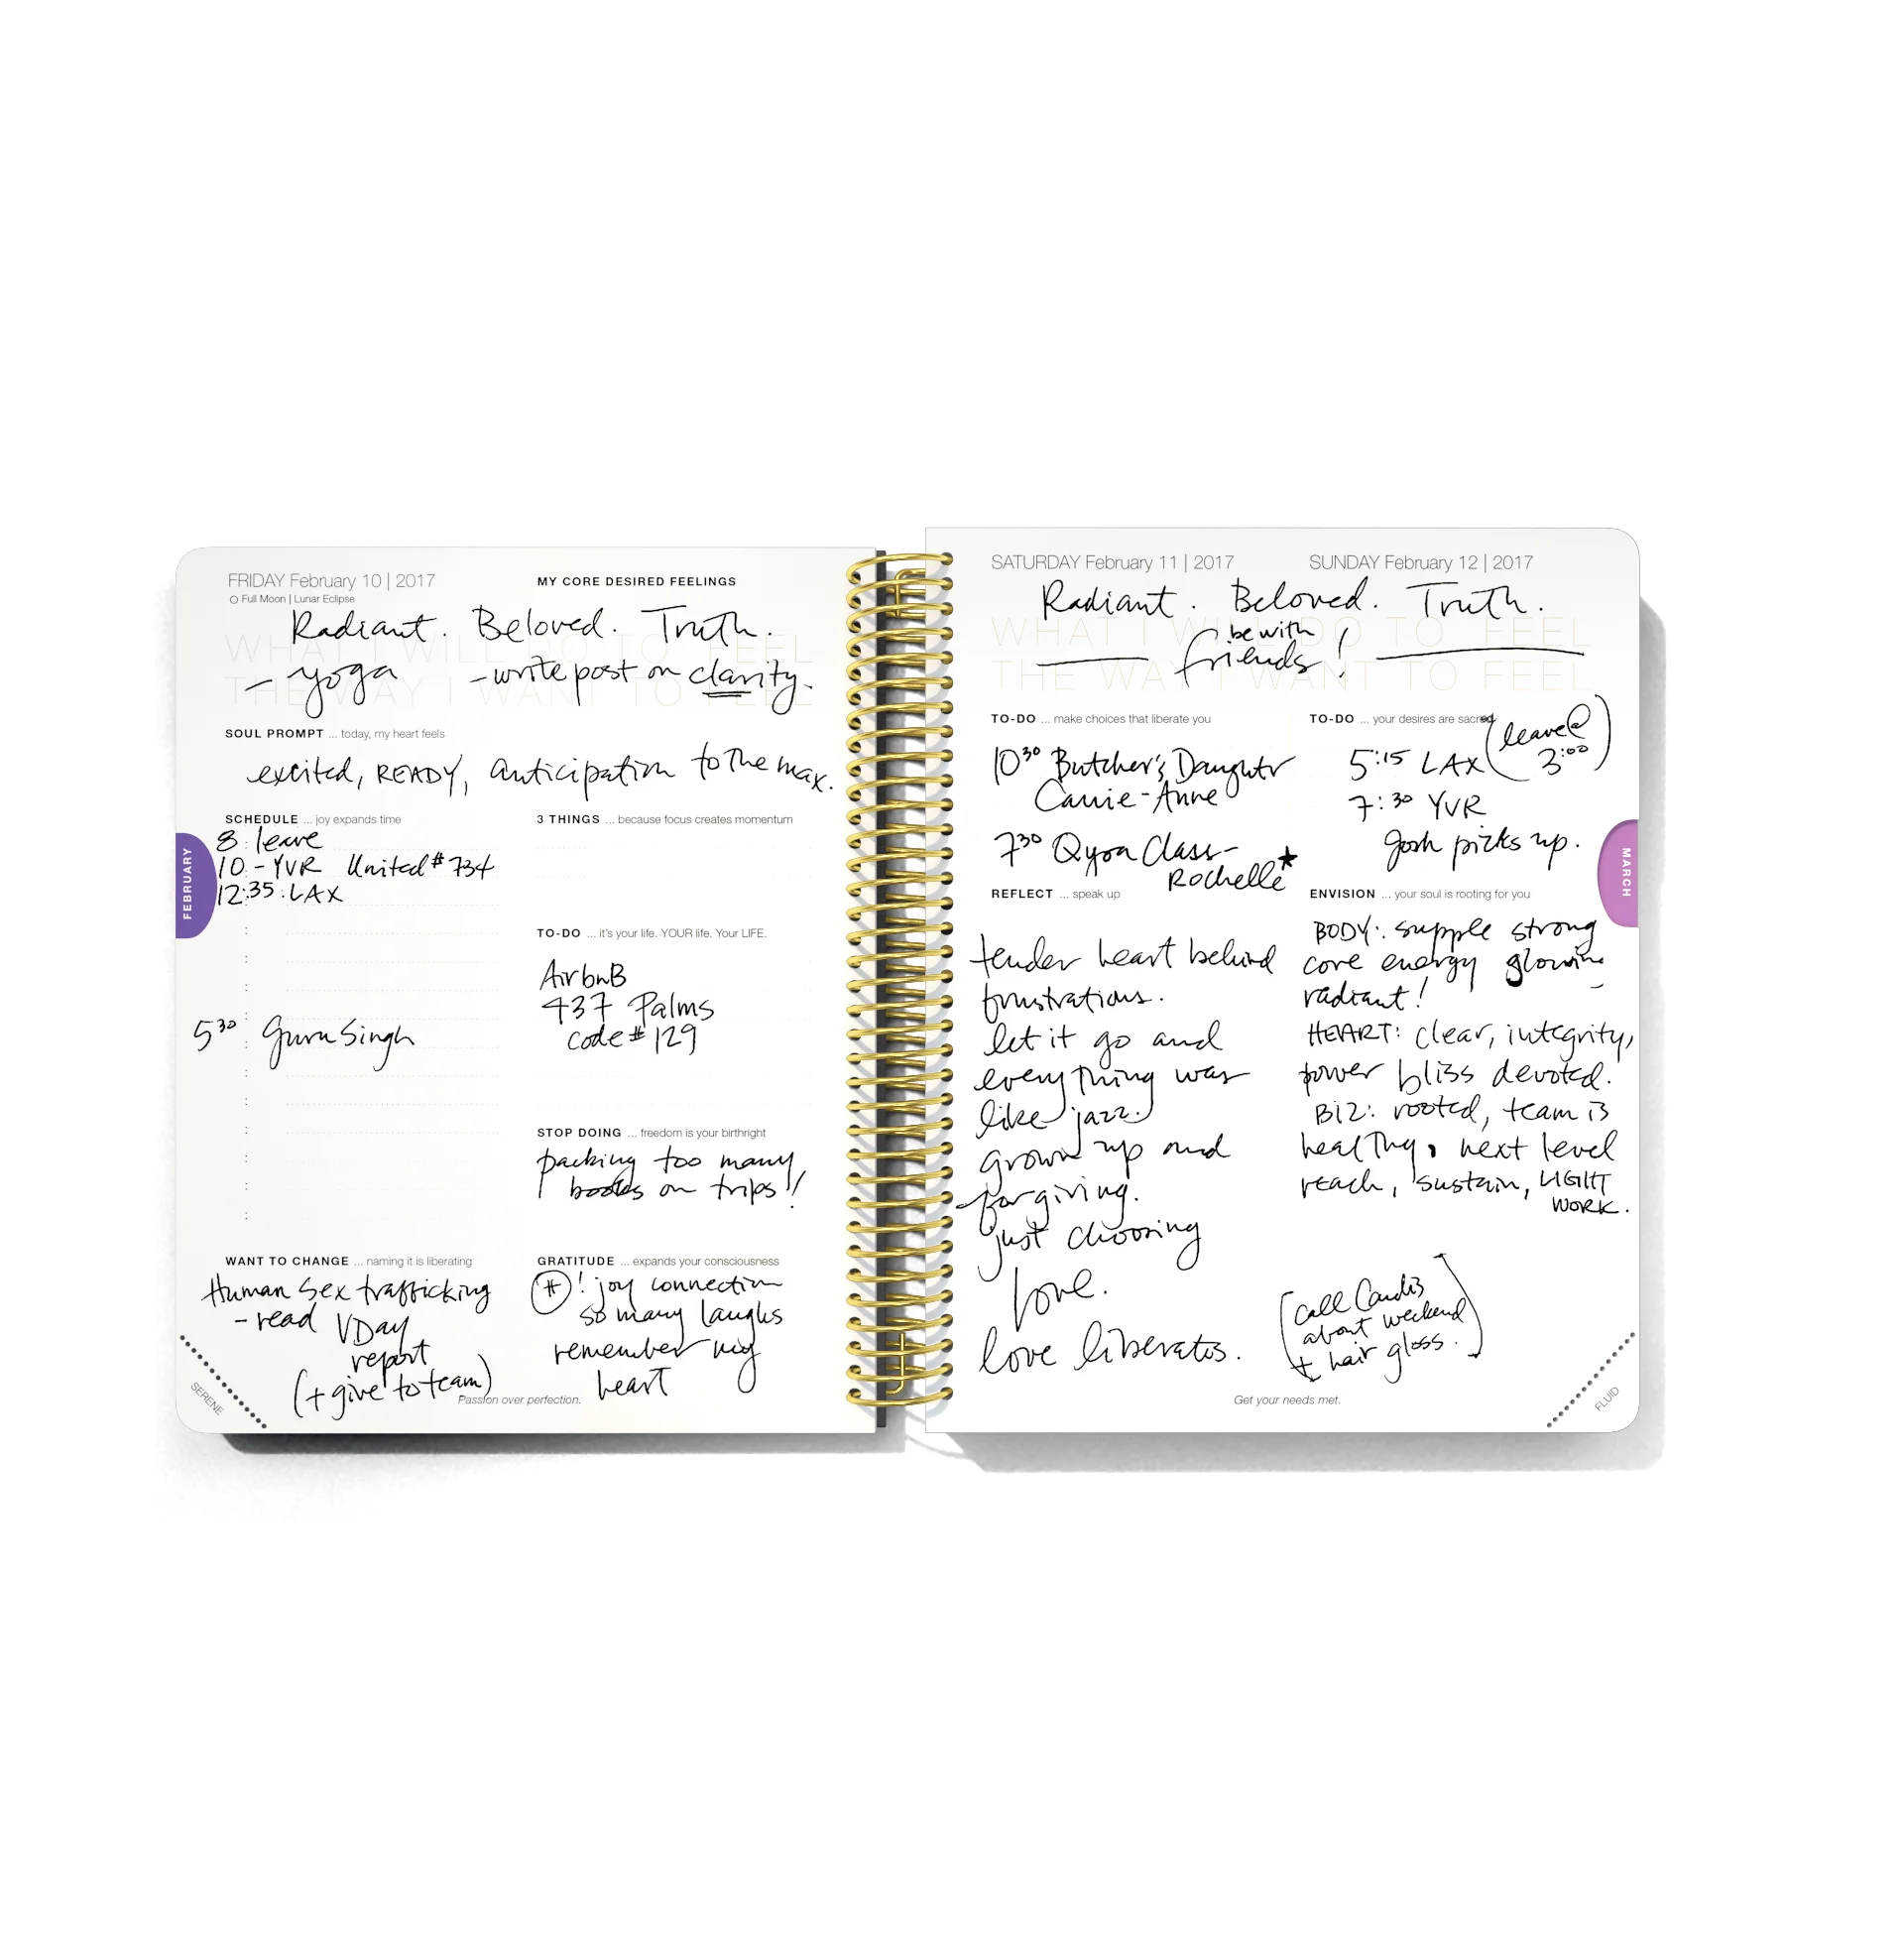 FRIDAY February 10 | 2017
Full Moon | Lunar Eclipse
MY CORE DESIRED FEELINGS
WHAT I WILL DO TO FEEL
THE WAY I WANT TO FEEL
Radiant. Beloved. Truth.
- yoga
- write post on clarity.
SOUL PROMPT ... today, my heart feels
excited, READY, anticipation to the max.
SCHEDULE ... joy expands time
8: leave
10 - YVR United #734
12:35: LAX
5 30 Guru Singh
3 THINGS ... because focus creates momentum
TO-DO ... it's your life. YOUR life. Your LIFE.
AirbnB
437 Palms
code # 129
STOP DOING ... freedom is your birthright
packing too many
books on trips!
WANT TO CHANGE ... naming it is liberating
Human Sex trafficking
- read VDay
report
(+ give to team)
GRATITUDE ... expands your consciousness
! joy connection
so many laughs
remember my
heart
Passion over perfection.
FEBRUARY
SERENE
SATURDAY February 11 | 2017
SUNDAY February 12 | 2017
WHAT I WILL DO TO FEEL
THE WAY I WANT TO FEEL
Radiant. Beloved. Truth.
be with
friends!
TO-DO ... make choices that liberate you
10 30 Butcher's Daughtr
Carrie-Anne
7 30 Class-
Rochelle
REFLECT ... speak up
tender heart behind
frustrations.
let it go and
everything was
like jazz.
grown up and
forgiving.
just choosing
love.
love liberates.
TO-DO ... your desires are sacred
(leave @
3:00)
5:15 LAX
7:30 YVR
Josh picks up.
ENVISION ... your soul is rooting for you
BODY: supple strong
core energy glowing
radiant!
HEART: clear, integrity,
power bliss devoted.
BIZ: rooted, team is
healthy, next level
reach, sustain, LIGHT
WORK.
(call Candis
about weekend
+ hair gloss.)
Get your needs met.
MARCH
FLUID